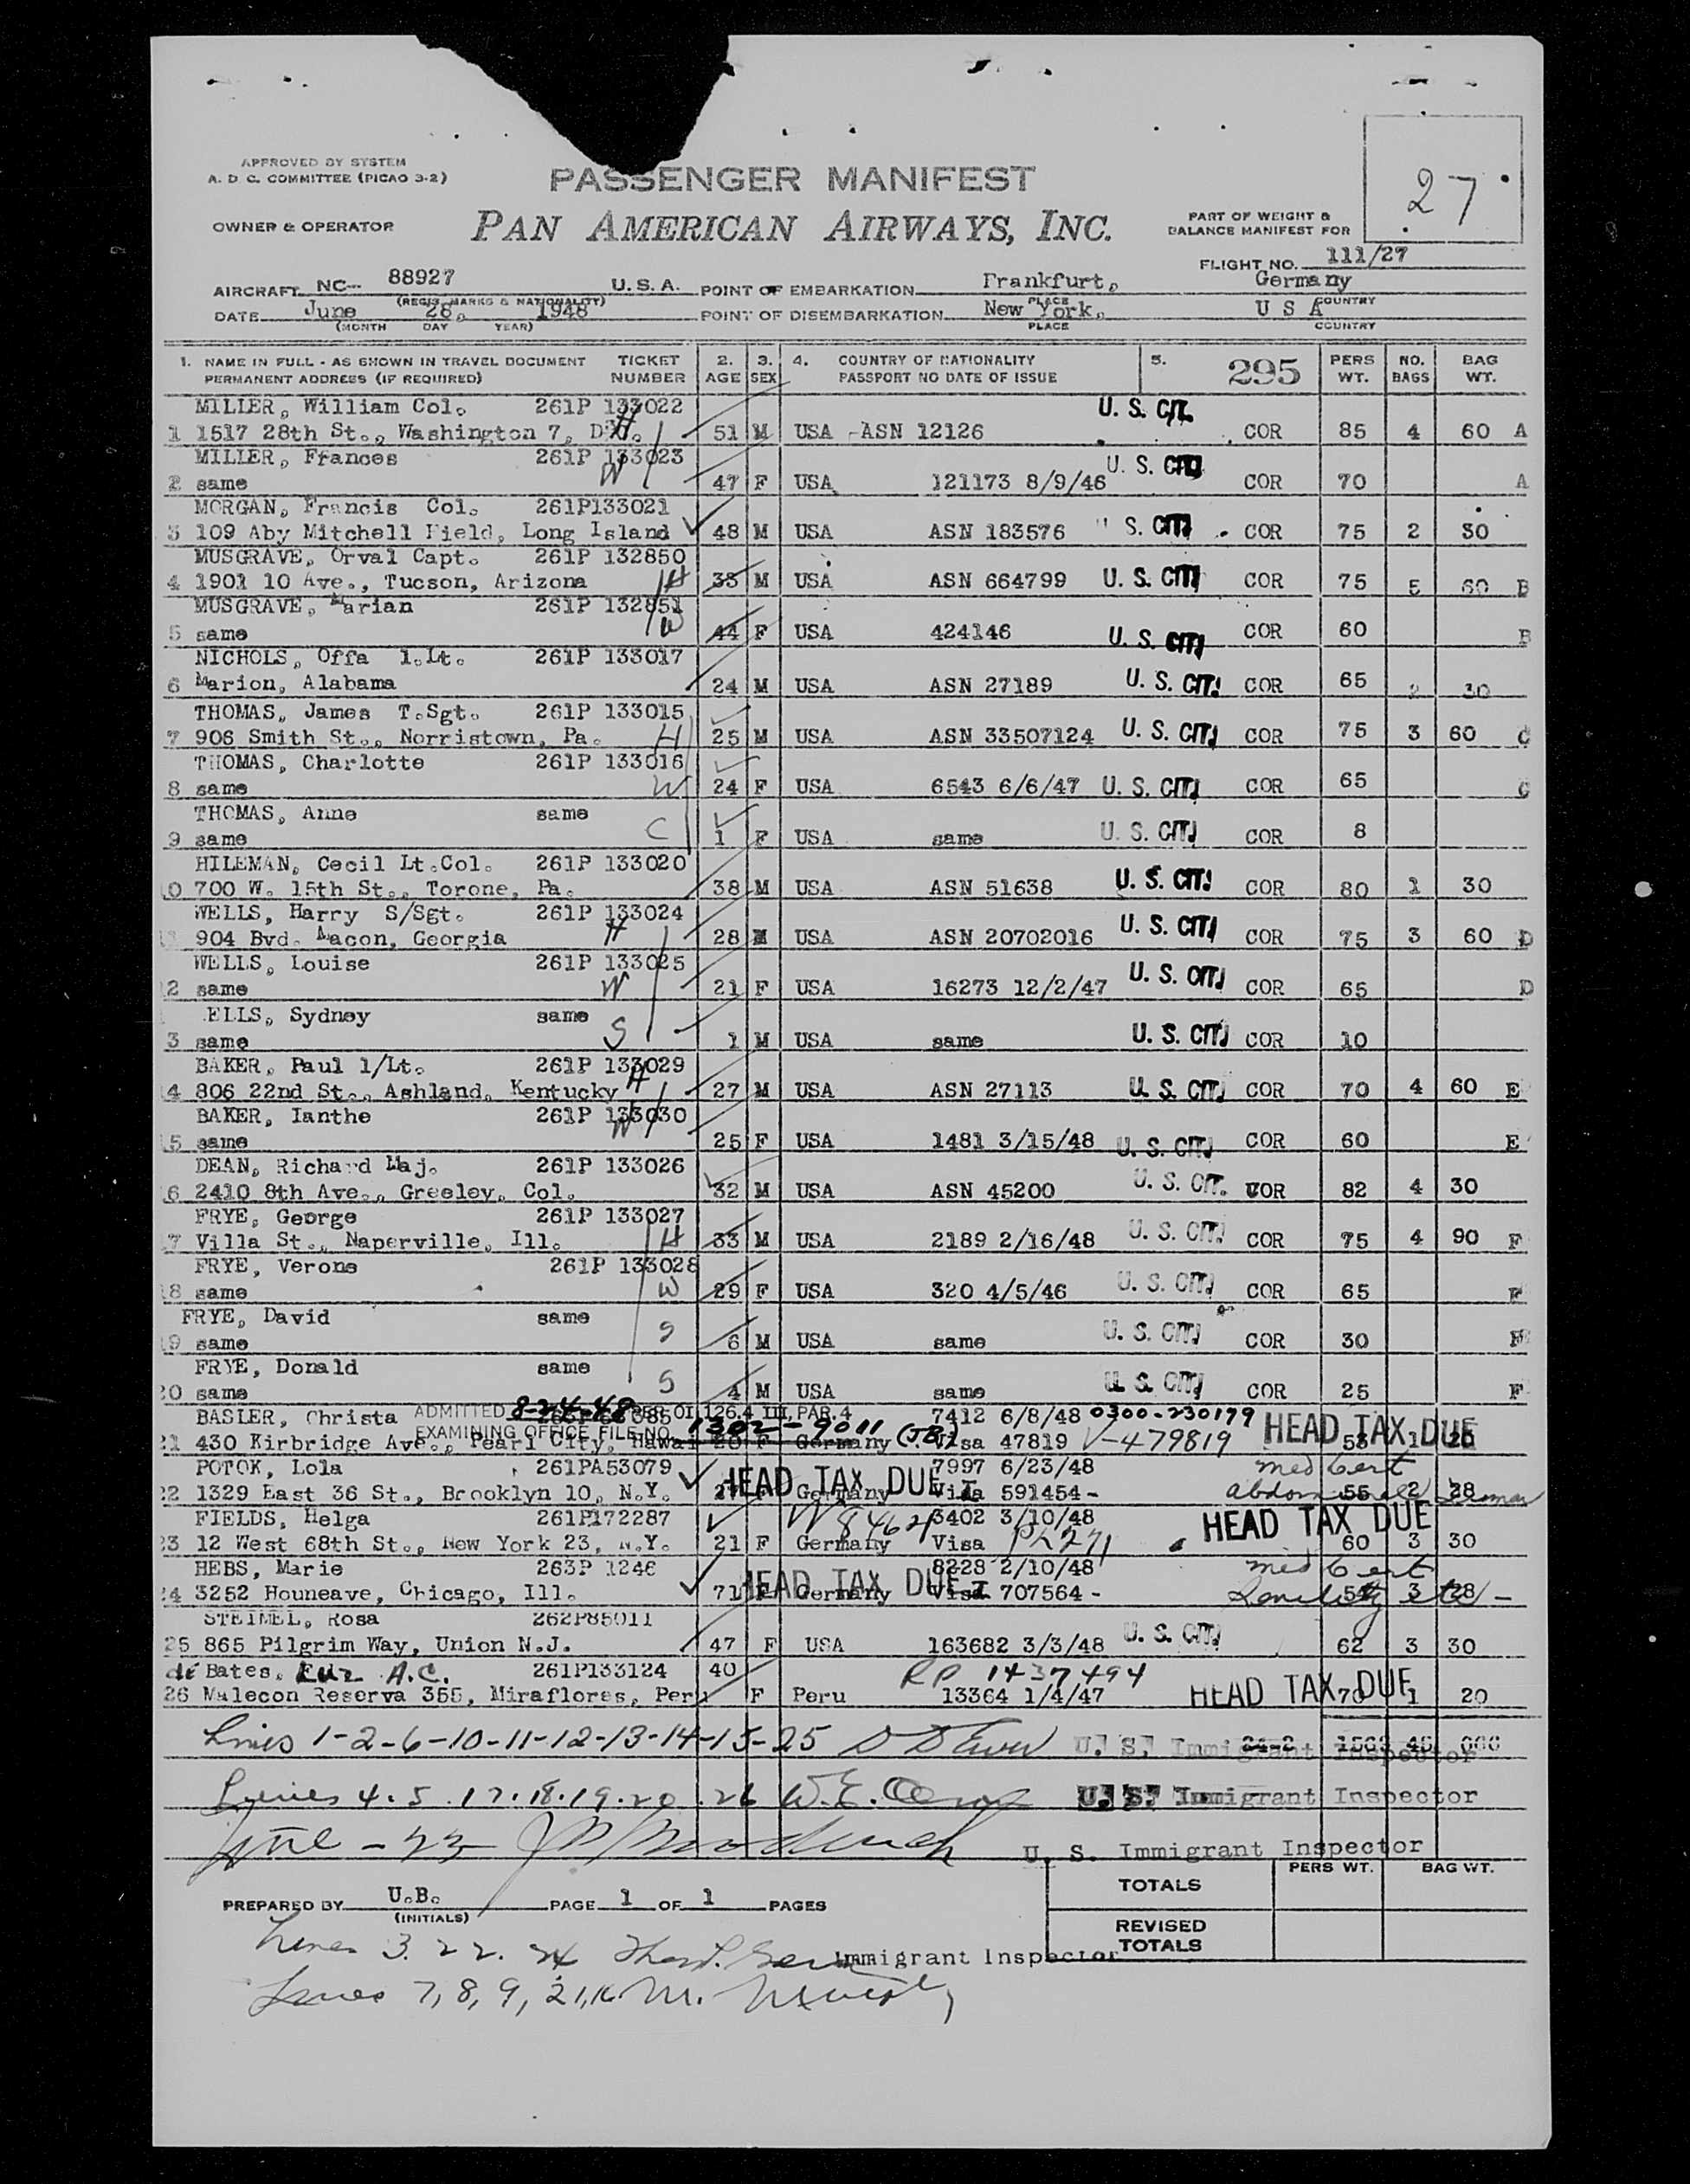 APPROVED BY SYSTEM
A. D C. COMMITTEE (PICAO 3-2)
PASSENGER MANIFEST
27
OWNER & OPERATOR
PAN AMERICAN AIRWAYS, INC.
PART OF WEIGHT &
BALANCE MANIFEST FOR
FLIGHT NO. 111/27
AIRCRAFT NC-- 88927 U.S.A. POINT OF EMBARKATION Frankfurt, Germany
(REGIS. MARKS & NATIONALITY) PLACE COUNTRY
DATE June 28, 1948 POINT OF DISEMBARKATION New York, U S A
(MONTH DAY YEAR) PLACE COUNTRY
1. NAME IN FULL - AS SHOWN IN TRAVEL DOCUMENT TICKET 2. 3. 4. COUNTRY OF NATIONALITY 5. 295 PERS NO. BAG
PERMANENT ADDRESS (IF REQUIRED) NUMBER AGE SEX PASSPORT NO DATE OF ISSUE WT. BAGS WT.
MILLER, William Col. 261P 133022 U. S. CIT.
1 1517 28th St., Washington 7, H 51 M USA -ASN 12126 COR 85 4 60 A
MILLER, Frances 261P 133023 U. S. CIT
2 same W 47 F USA 121173 8/9/46 COR 70 A
MORGAN, Francis Col. 261P133021
3 109 Aby Mitchell Field, Long Island 48 M USA ASN 183576 S. CIT COR 75 2 30
MUSGRAVE, Orval Capt. 261P 132850
4 1901 10 Ave., Tucson, Arizona H 35 M USA ASN 664799 U. S. CIT COR 75 5 60 B
MUSGRAVE, Marian 261P 132851
5 same W 44 F USA 424146 U. S. CIT COR 60 B
NICHOLS, Offa 1.Lt. 261P 133017
6 Marion, Alabama 24 M USA ASN 27189 U. S. CIT. COR 65 2 30
THOMAS, James T.Sgt. 261P 133015
7 906 Smith St., Norristown, Pa. H 25 M USA ASN 33507124 U. S. CIT. COR 75 3 60 C
THOMAS, Charlotte 261P 133016
8 same W 24 F USA 6543 6/6/47 U. S. CIT. COR 65 C
THOMAS, Anne same
9 same C 1 F USA same U. S. CIT. COR 8
HILEMAN, Cecil Lt.Col. 261P 133020
10 700 W. 15th St., Torone, Pa. 38 M USA ASN 51638 U. S. CIT. COR 80 1 30
WELLS, Harry S/Sgt. 261P 133024
904 Bvd. Macon, Georgia H 28 M USA ASN 20702016 U. S. CIT. COR 75 3 60 D
WELLS, Louise 261P 133025
2 same W 21 F USA 16273 12/2/47 U. S. CIT. COR 65 D
ELLS, Sydney same
3 same S 1 M USA same U. S. CIT. COR 10
BAKER, Paul 1/Lt. 261P 133029
14 806 22nd St., Ashland, Kentucky H 27 M USA ASN 27113 U. S. CIT. COR 70 4 60 E
BAKER, Ianthe 261P 133030
15 same W 25 F USA 1481 3/15/48 U. S. CIT. COR 60 E
DEAN, Richard Maj. 261P 133026
16 2410 8th Ave., Greeley, Col. 32 M USA ASN 45200 U. S. CIT. COR 82 4 30
FRYE, George 261P 133027
17 Villa St., Naperville, Ill. H 33 M USA 2189 2/16/48 U. S. CIT. COR 75 4 90 F
FRYE, Verone 261P 133028
18 same W 29 F USA 320 4/5/46 U. S. CIT. COR 65 F
FRYE, David same
19 same S 6 M USA same U. S. CIT. COR 30 F
FRYE, Donald same
20 same S 4 M USA same U. S. CIT. COR 25 F
BASLER, Christa ADMITTED 8-24-48 PER OI 126.4 III, PAR. 4 7412 6/8/48 0300-230179 HEAD TAX DUE
EXAMINING OFFICE FILE NO. 1302-9011 (JB)
21 430 Kirbridge Ave., Pearl City, Hawai 20 F Germany Visa 47819 V-479819 53 1 26
POTOK, Lola 261PA53079 HEAD TAX DUE 7997 6/23/48 med cert
22 1329 East 36 St., Brooklyn 10, N.Y. Germany Visa 591454- abdominal 55 2 28
FIELDS, Helga 261P172287 3402 3/10/48 HEAD TAX DUE
23 12 West 68th St., New York 23, N.Y. 21 F Germany Visa 60 3 30
HEBS, Marie 263P 1246 HEAD TAX DUE 8228 2/10/48 med cert
24 3252 Houneave, Chicago, Ill. 71 F Germany Visa 707564- Senility etc - 54 3 28
STEIMEL, Rosa 262P85011
25 865 Pilgrim Way, Union N.J. 47 F USA 163682 3/3/48 U. S. CIT. 62 3 30
de Bates, Luz A.C. 261P133124 40 RP 1437494
26 Malecon Reserva 355, Miraflores, Peru F Peru 13364 1/4/47 HEAD TAX DUE 70 1 20
Lines 1-2-6-10-11-12-13-14-15-25 U. S. Immigrant Inspector
Lines 4.5.17.18.19.20.26 W.E. U. S. Immigrant Inspector
Line - 23 U. S. Immigrant Inspector
PERS WT. BAG WT.
TOTALS
PREPARED BY U.B. PAGE 1 OF 1 PAGES
(INITIALS)
REVISED
TOTALS
Lines 3. 22. 24 Immigrant Inspector
Lines 7, 8, 9, 21, 16 M.